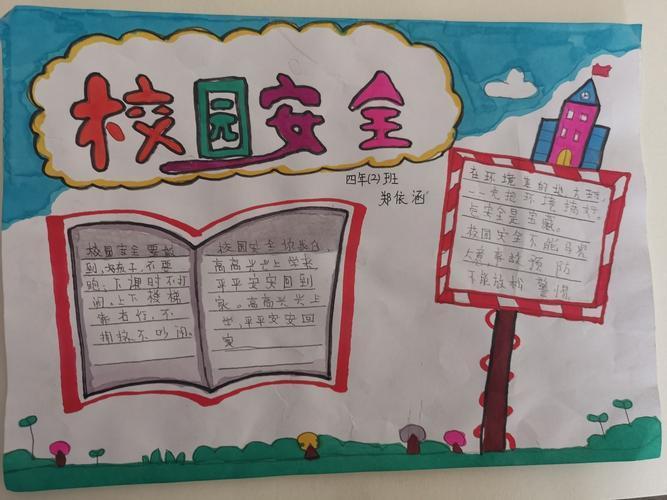 校园安全
四年(2)班
郑依涵
校园安全要做
到,好孩子,不要
跑,下课时不打
闹,上下楼梯
靠右行,不
拥挤,不吵闹。
校园安全
高高兴兴上学来
平平安安回到
家。高高兴兴上
学,平平安安回
家
在环境
把环境搞好
安全是宝藏。
校园安全不能马
事故预防
不能放松警惕